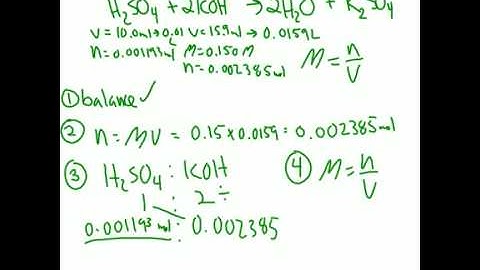 H₂SO₄ + 2KOH → 2H₂O + K₂SO₄
V = 10.0ml → 0.01L V = 15.9ml → 0.0159L
n = 0.001193mol M = 0.150M
n = 0.002385mol
M = n/V
① balance ✓
② n = MV = 0.15 x 0.0159 = 0.002385mol
③ H₂SO₄ : KOH
1 : 2 ÷
0.001193 mol : 0.002385
④ M = n/V